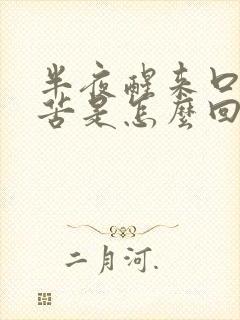 半夜醒来口
苦是怎么回
二月河.